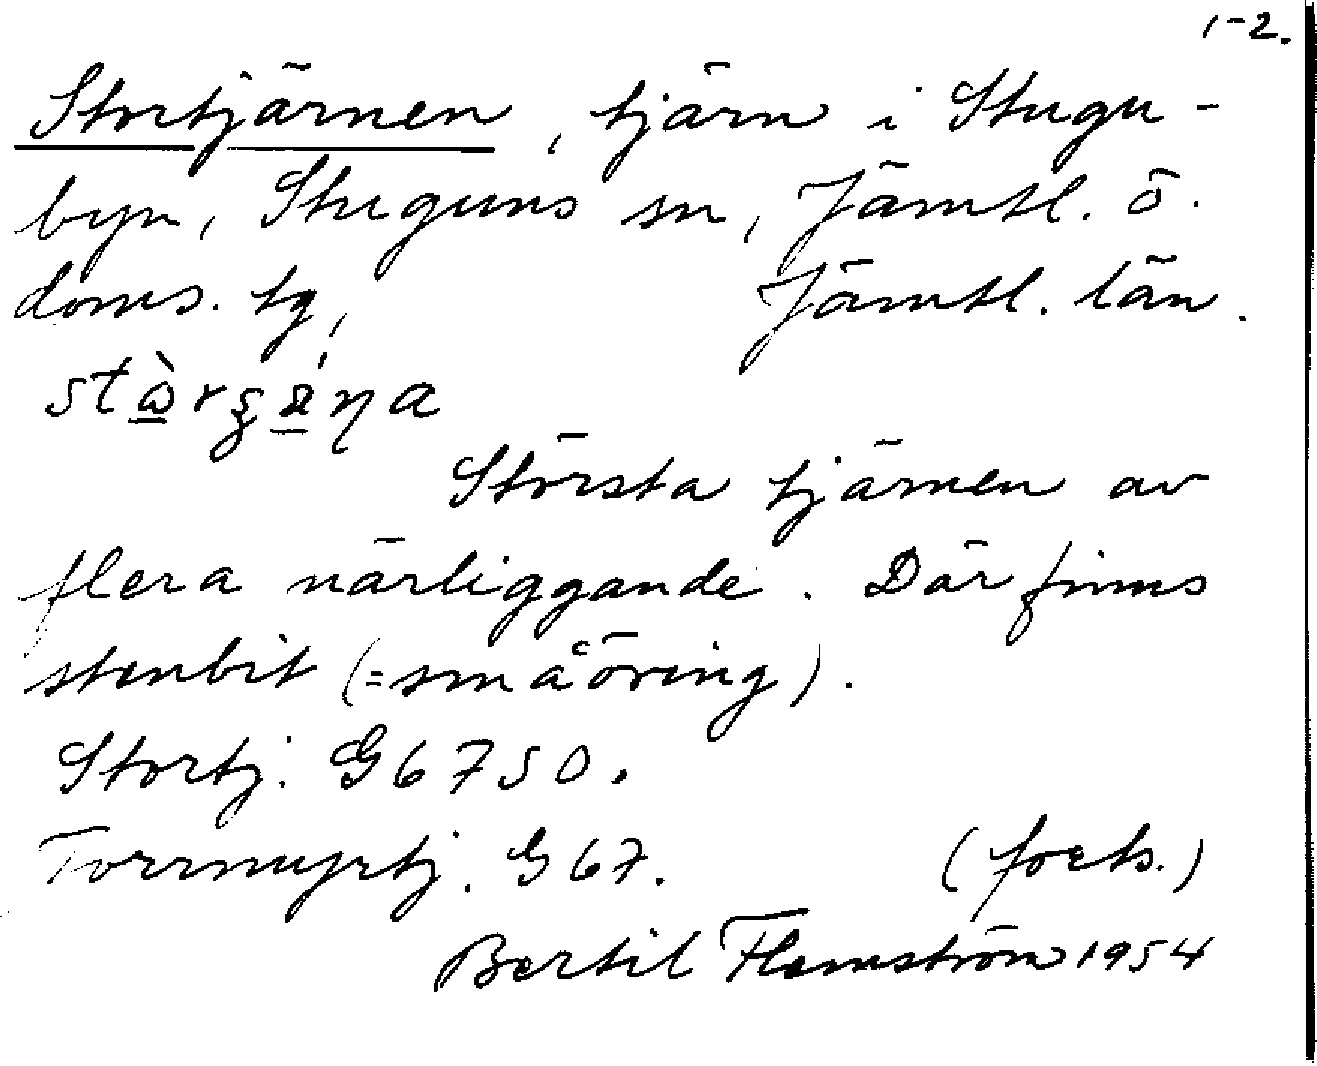 1-2.
Stortjärnen, tjärn i Stugu-
byn, Stuguns sn, Jämtl. ö.
doms. tg, Jämtl. län.
Största tjärnen av
flera närliggande. Där finns
stenbit (= småöring).
Stortj. G6750.
Torrmyrtj. G67. (forts.)
Bertil Flemström 1954